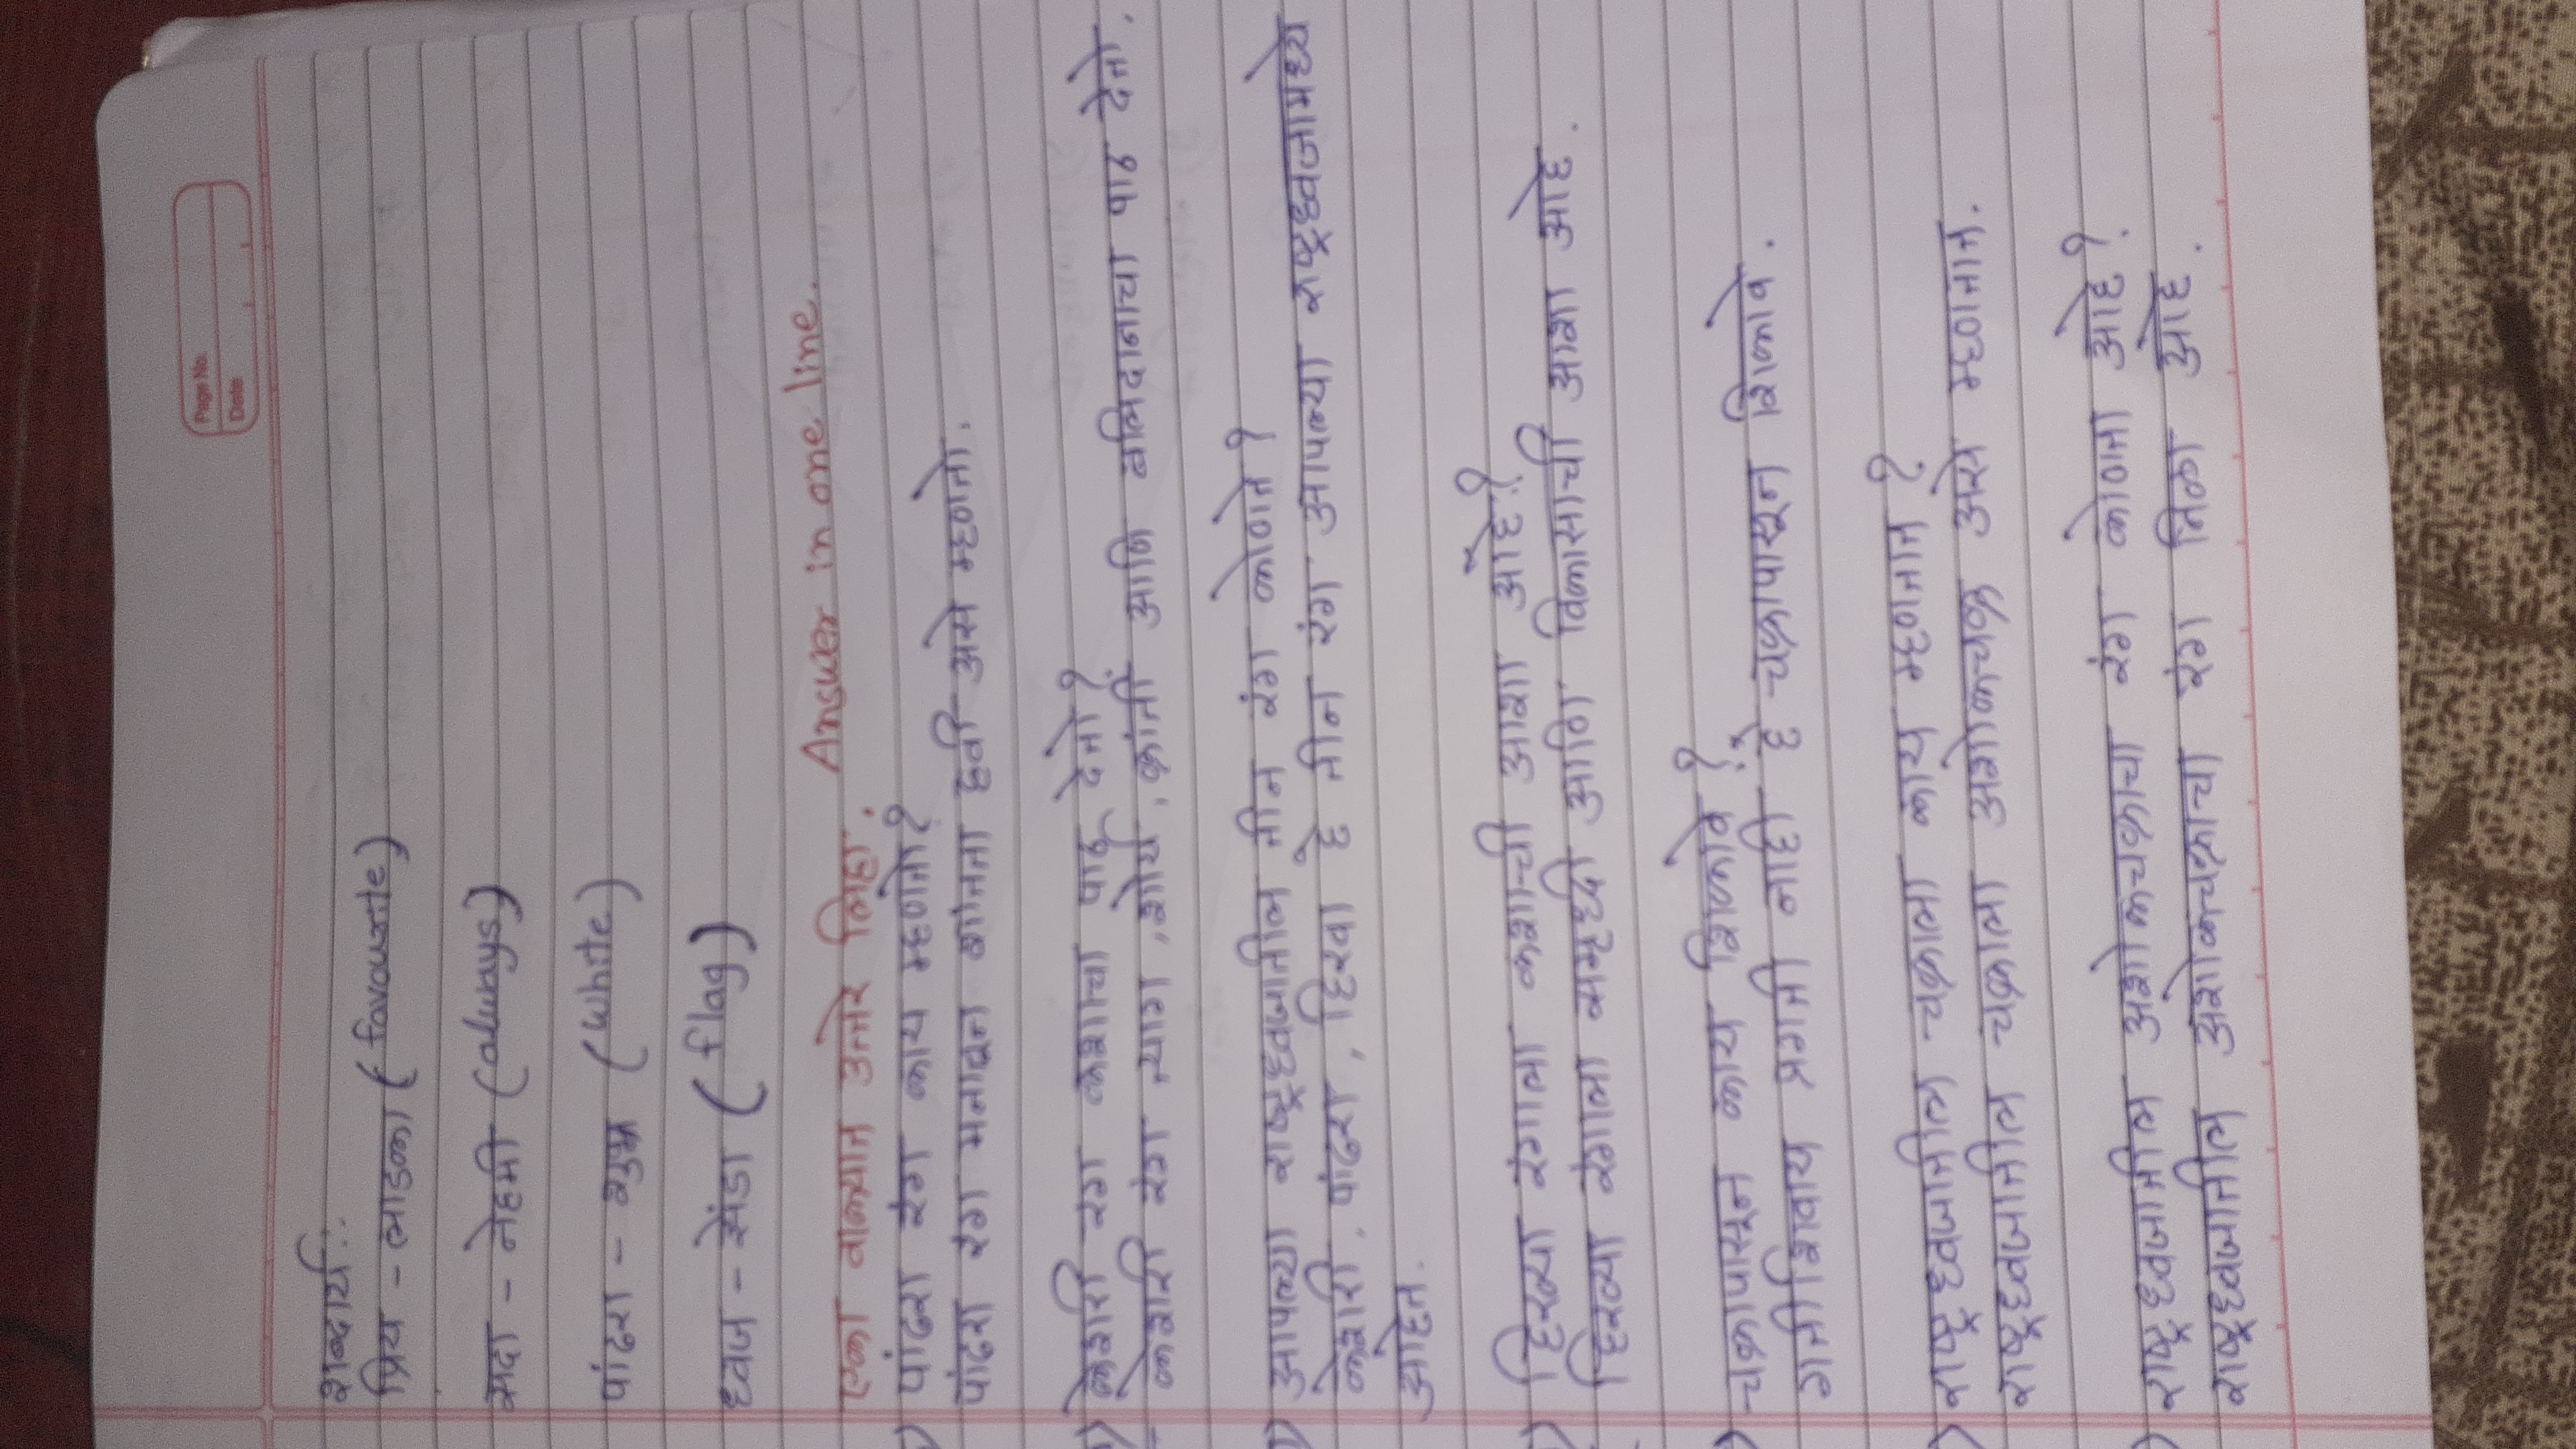 Page No.
Date
शब्दार्थ:
प्रिय - लाडका (favourite)
सदा - नेहमी (always)
पांढरा - शुभ्र (white)
ध्वज - झेंडा (flag)
एका वाक्यात उत्तरे लिहा. Answer in one line.
) पांढरा रंग काय म्हणतो?
पांढरा रंग मनातून शांतता हवी असे म्हणतो.
) केशरी रंग कशाचा पाठ देतो?
केशरी रंग त्याग, शौर्य, क्रांती आणि बलिदानाचा पाठ देतो.
) आपल्या राष्ट्रध्वजातील तीन रंग कोणते?
केशरी, पांढरा, हिरवा हे तीन रंग आपल्या राष्ट्रध्वजामध्ये
आहेत.
) हिरव्या रंगाला कशाची आशा आहे?
हिरव्या रंगाला समृद्धी आणि विकासाची आशा आहे.
) चक्रापासून काय शिकावे?
गतीशिवाय प्रगती नाही हे चक्रापासून शिकावे.
) राष्ट्रध्वजातील चक्राला काय म्हणतात?
राष्ट्रध्वजातील चक्राला अशोकचक्र असे म्हणतात.
) राष्ट्रध्वजातील अशोकचक्राचा रंग कोणता आहे?
राष्ट्रध्वजातील अशोकचक्राचा रंग निळा आहे.